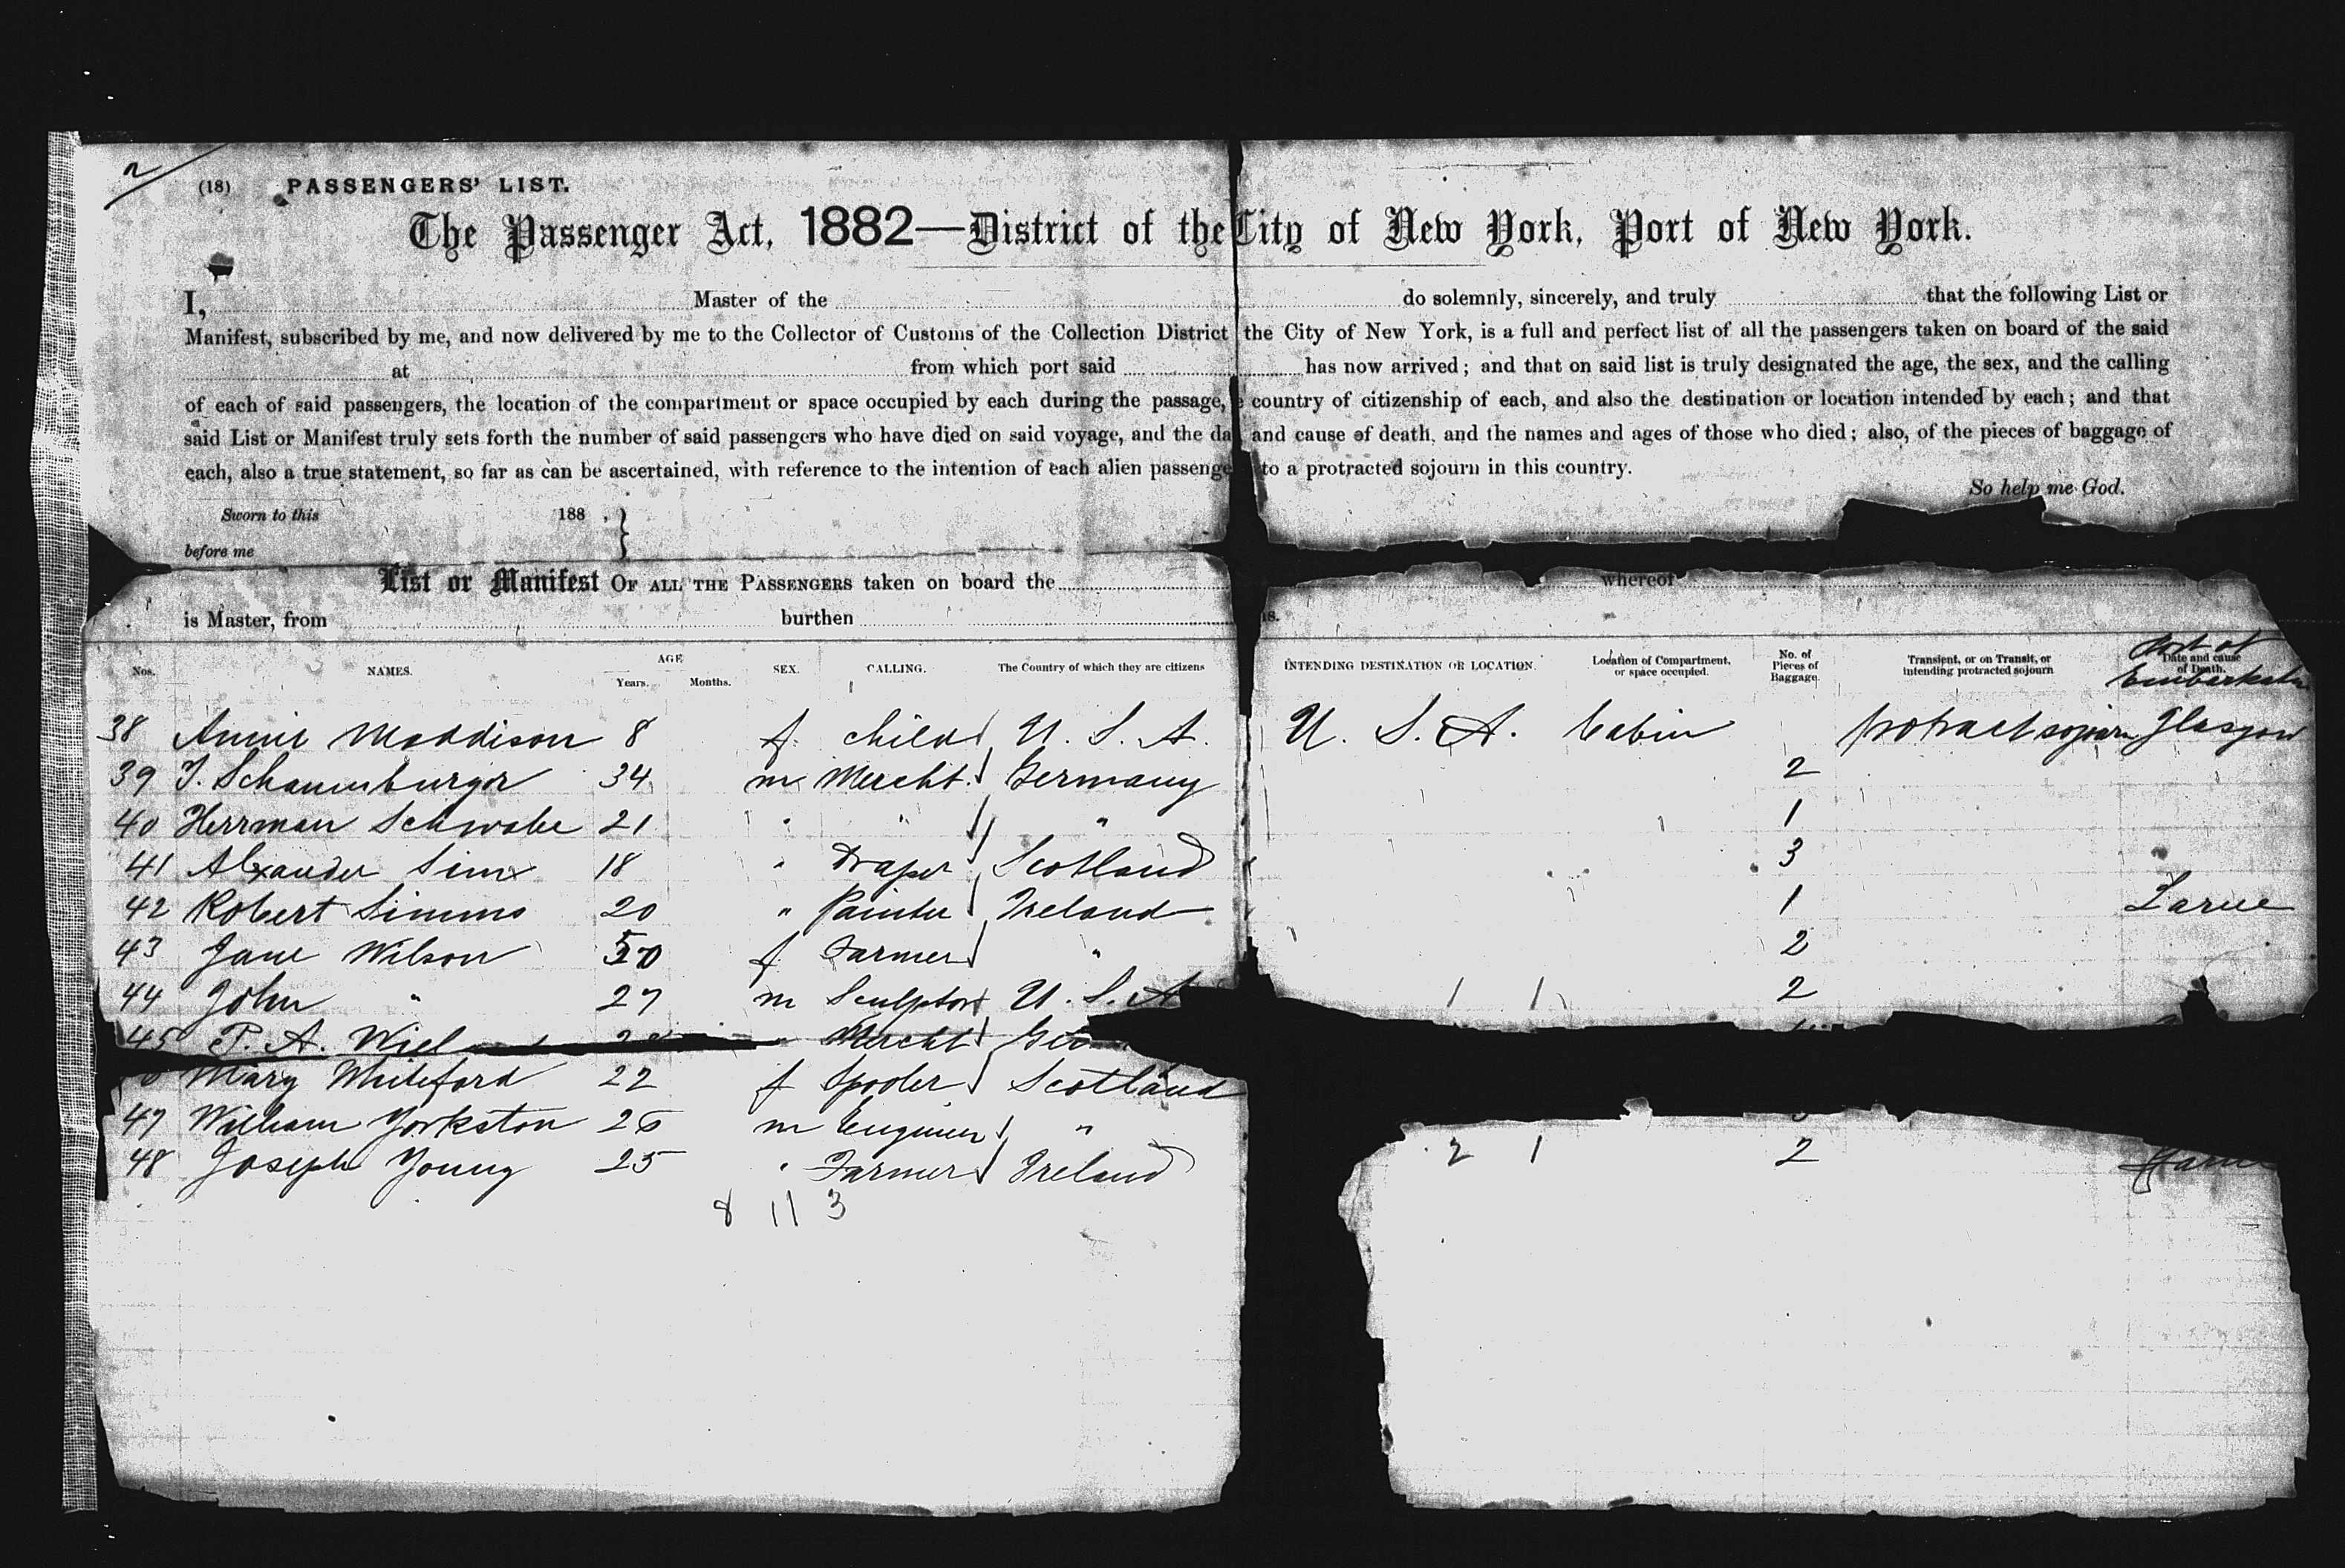 2
(18) PASSENGERS' LIST.
The Passenger Act, 1882—District of the City of New York, Port of New York.
I, Master of the do solemnly, sincerely, and truly that the following List or
Manifest, subscribed by me, and now delivered by me to the Collector of Customs of the Collection District the City of New York, is a full and perfect list of all the passengers taken on board of the said
at from which port said has now arrived; and that on said list is truly designated the age, the sex, and the calling
of each of said passengers, the location of the compartment or space occupied by each during the passage, country of citizenship of each, and also the destination or location intended by each; and that
said List or Manifest truly sets forth the number of said passengers who have died on said voyage, and the da and cause of death, and the names and ages of those who died; also, of the pieces of baggage of
each, also a true statement, so far as can be ascertained, with reference to the intention of each alien passenge to a protracted sojourn in this country.
So help me God.
Sworn to this 188 ,
before me
List or Manifest OF ALL THE PASSENGERS taken on board the whereof
is Master, from burthen ns.
Nos. NAMES. AGE Years. Months. SEX. CALLING. The Country of which they are citizens INTENDING DESTINATION OR LOCATION. Location of Compartment, or space occupied. No. of Pieces of Baggage. Transient, or on Transit, or intending protracted sojourn Date and cause of Death. Port of Embarkatn
38 Annie Maddison 8 f. child U. S. A. U. S. A. Cabin protract sojourn Glasgow
39 34 m Mercht. Germany 2
40 Herrman Schwabe 21 " " " 1
41 Alexander Sim 18 " Draper Scotland 3
42 Robert Simms 20 " Painter Ireland 1 Larne
43 Jane Wilson 50 f Farmer " 2
44 John " 27 m Sculptor U. S. A 2
45 P. A. Wiel " Mercht Ge
Mary Whiteford 22 f Spooler Scotland
47 William Yorkston 26 m Engineer "
48 Joseph Young 25 " Farmer Ireland 2 1 2 Larne
8 11 3